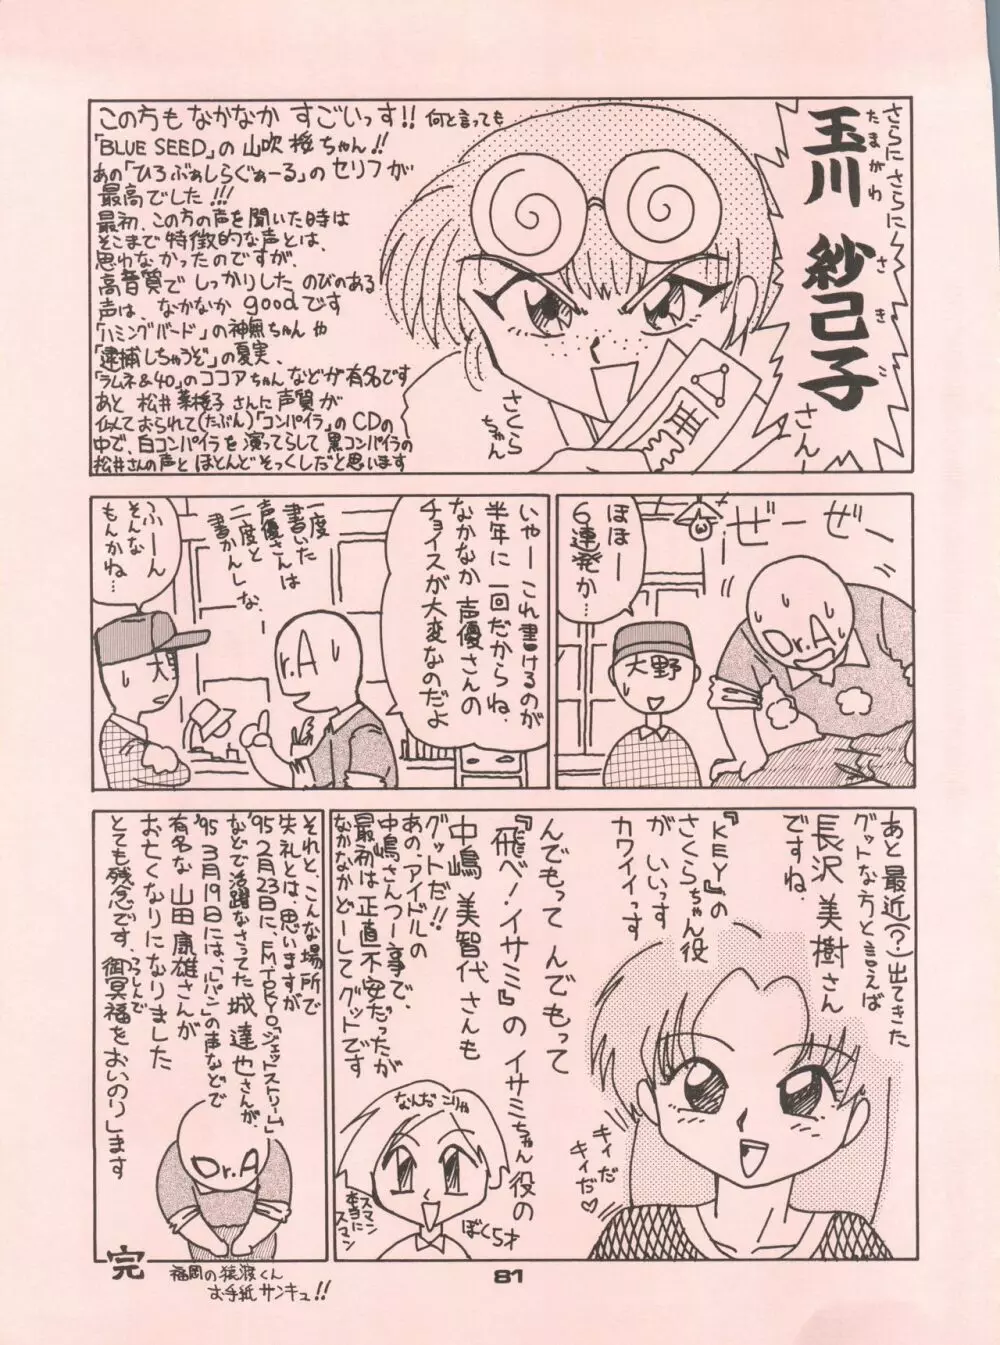 さらにさらに
玉川 紗己子
たまがわ さきこ
さんー
この方もなかなか すごいっす!! 何と言っても
「BLUE SEED」の山吹 桜ちゃん!!
あの「ひろぶぁしらぐぁーる」のセリフが
最高でした!!!
最初、この方の声を聞いた時は
そこまで特徴的な声とは、
思わなかったのですが、
高音質でしっかりしたのびのある
声は、なかなかgoodです
「ハミングバード」の神無ちゃんや
「逮捕しちゃうぞ」の夏実、
「ラムネ&40」のココアちゃんなどが有名です
あと 松井 菜桜子さんに声質が
似ておられて(たぶん)「コンパイラ」のCDの
中で、白コンパイラを演ってらして黒コンパイラの
松井さんの声とほとんどそっくしだと思います
さくら
ちゃん
ぜーぜー
Dr.A
ほほー
6連発か…
大野
いやーこれ書けるのが
半年に一回だからね、
なかなか声優さんの
チョイスが大変なのだよ
一度
書いた
声優さんは
二度と
書かんしな、
Dr.A
ふーん
そんな
もんかね…
大野
あと最近(?)出てきた
グットな方と言えば
長沢 美樹さん
ですね、
『KEY』の
さくらちゃん役
がいいっす
カワイイっス
キィだ
キィだ♡
んでもってんでもって
『飛べ!イサミ』のイサミちゃん役の
中嶋 美智代さんも
グットだ!!
あの、アイドルの
中嶋さんつー事で、
最初は正直、不安だったが
なかなかどーしてグットです
なんだ こりゃ
スマン
本当に
スマン
ぼく5才
それと、こんな場所で
失礼とは、思いますが
'95 2月23日に、F.M.TOKYO「ジェットストリーム」
などで活躍なさってた城 達也さんが、
'95 3月19日には、「ルパン」の声などで
有名な 山田 康雄さんが
お亡くなりになりました
とても残念です、つつしんで
御冥福をおいのりします
Dr.A
完
福岡の猿渡くん
お手紙サンキュ!!
81